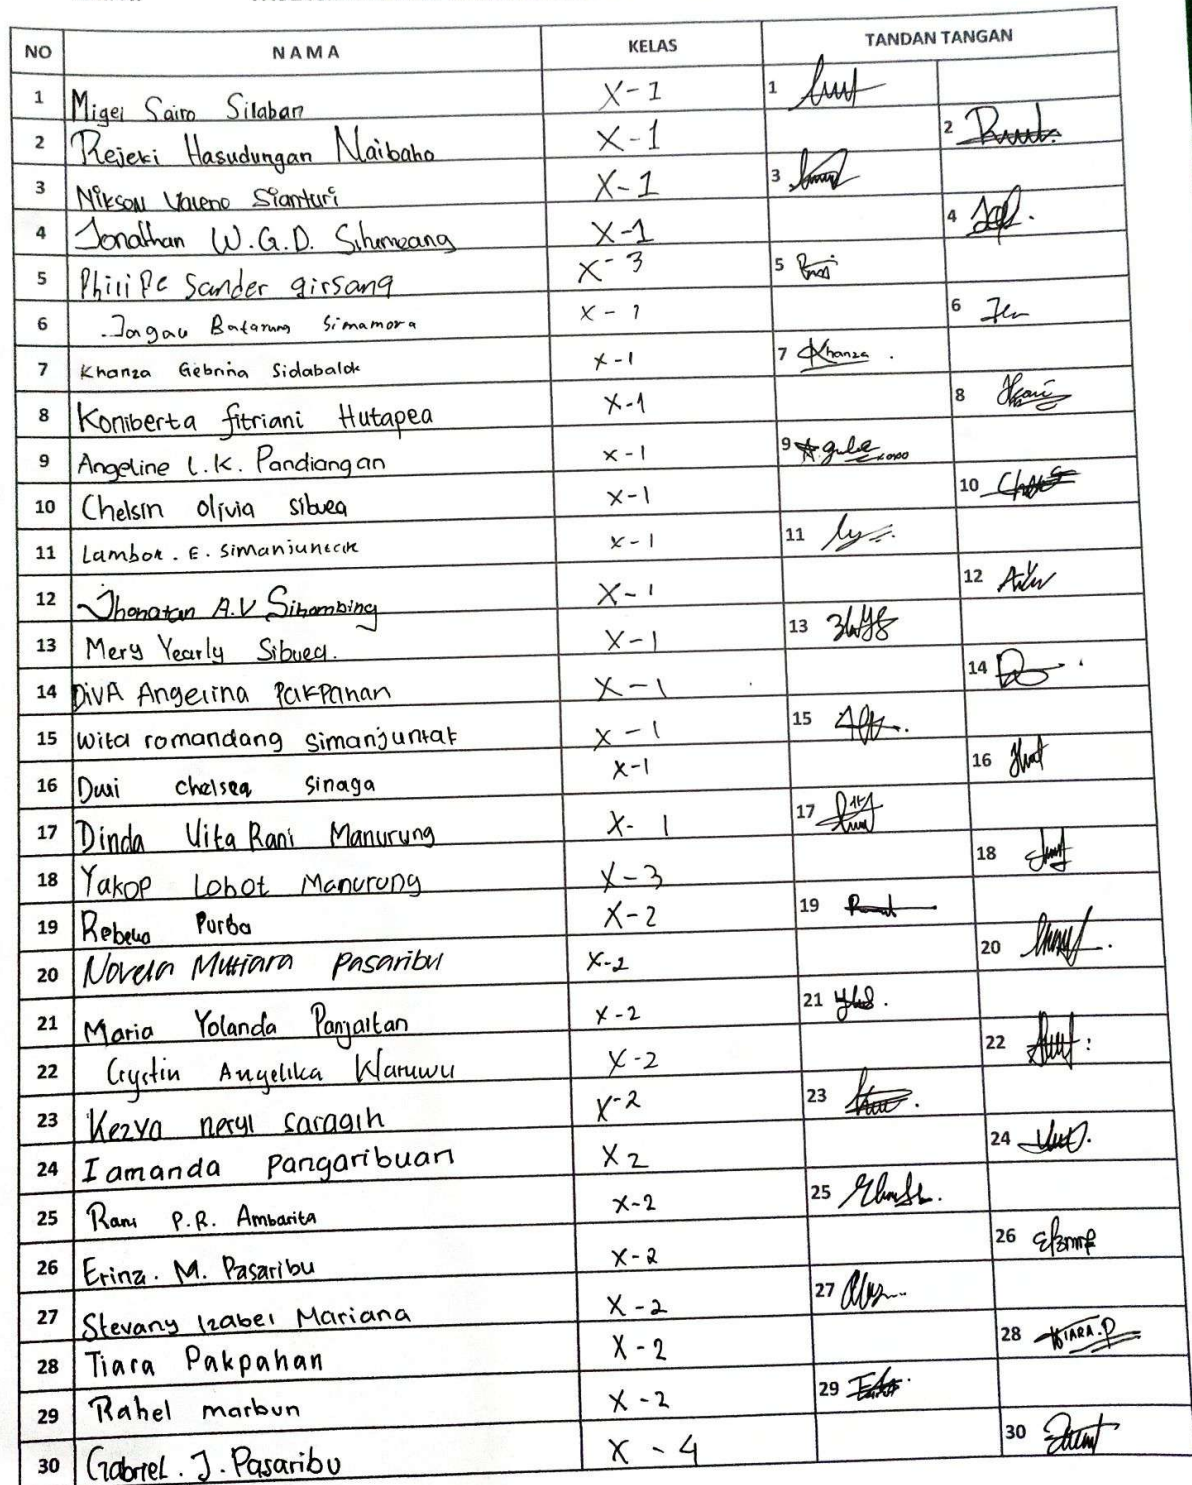 NO NAMA KELAS TANDAN TANGAN
1 Migei Sairo Silaban X-1 1
2 Rejeki Hasudungan Naibaho X-1 2
3 Nikson Vareno Sianturi X-1 3
4 Jonathan W.G.D. Situmeang X-1 4
5 Philipe Sander girsang X-3 5
6 Jagau Batarung Simamora X-1 6
7 Khanza Gebrina Sidabalok X-1 7 Khanza.
8 Koniberta fitriani Hutapea X-1 8
9 Angeline L.K. Pandiangan X-1 9
10 Chelsin olivia sibuea X-1 10
11 Lambok. E. Simanjuntak X-1 11
12 Jhonatan A.V Sihombing X-1 12
13 Mery Yearly Sibuea. X-1 13
14 DivA Angelina pakpahan X-1 14
15 wita romandang simanjuntak X-1 15
16 Dwi chelsea sinaga X-1 16
17 Dinda Vita Rani Manurung X-1 17
18 Yakop Lobot Manurung X-3 18
19 Rebeka Purba X-2 19
20 Novela Mutiara pasaribu X-2 20
21 Maria Yolanda Panjaitan X-2 21
22 Crystin Angelika Waruwu X-2 22
23 Kezya neryl saragih X-2 23
24 Iamanda pangaribuan X2 24
25 Rani P.R. Ambarita X-2 25
26 Erina. M. Pasaribu X-2 26
27 Stevany Izabel Mariana X-2 27
28 Tiara Pakpahan X-2 28 TIARA.P
29 Rahel marbun X-2 29
30 Gabriel. J. Pasaribu X-4 30